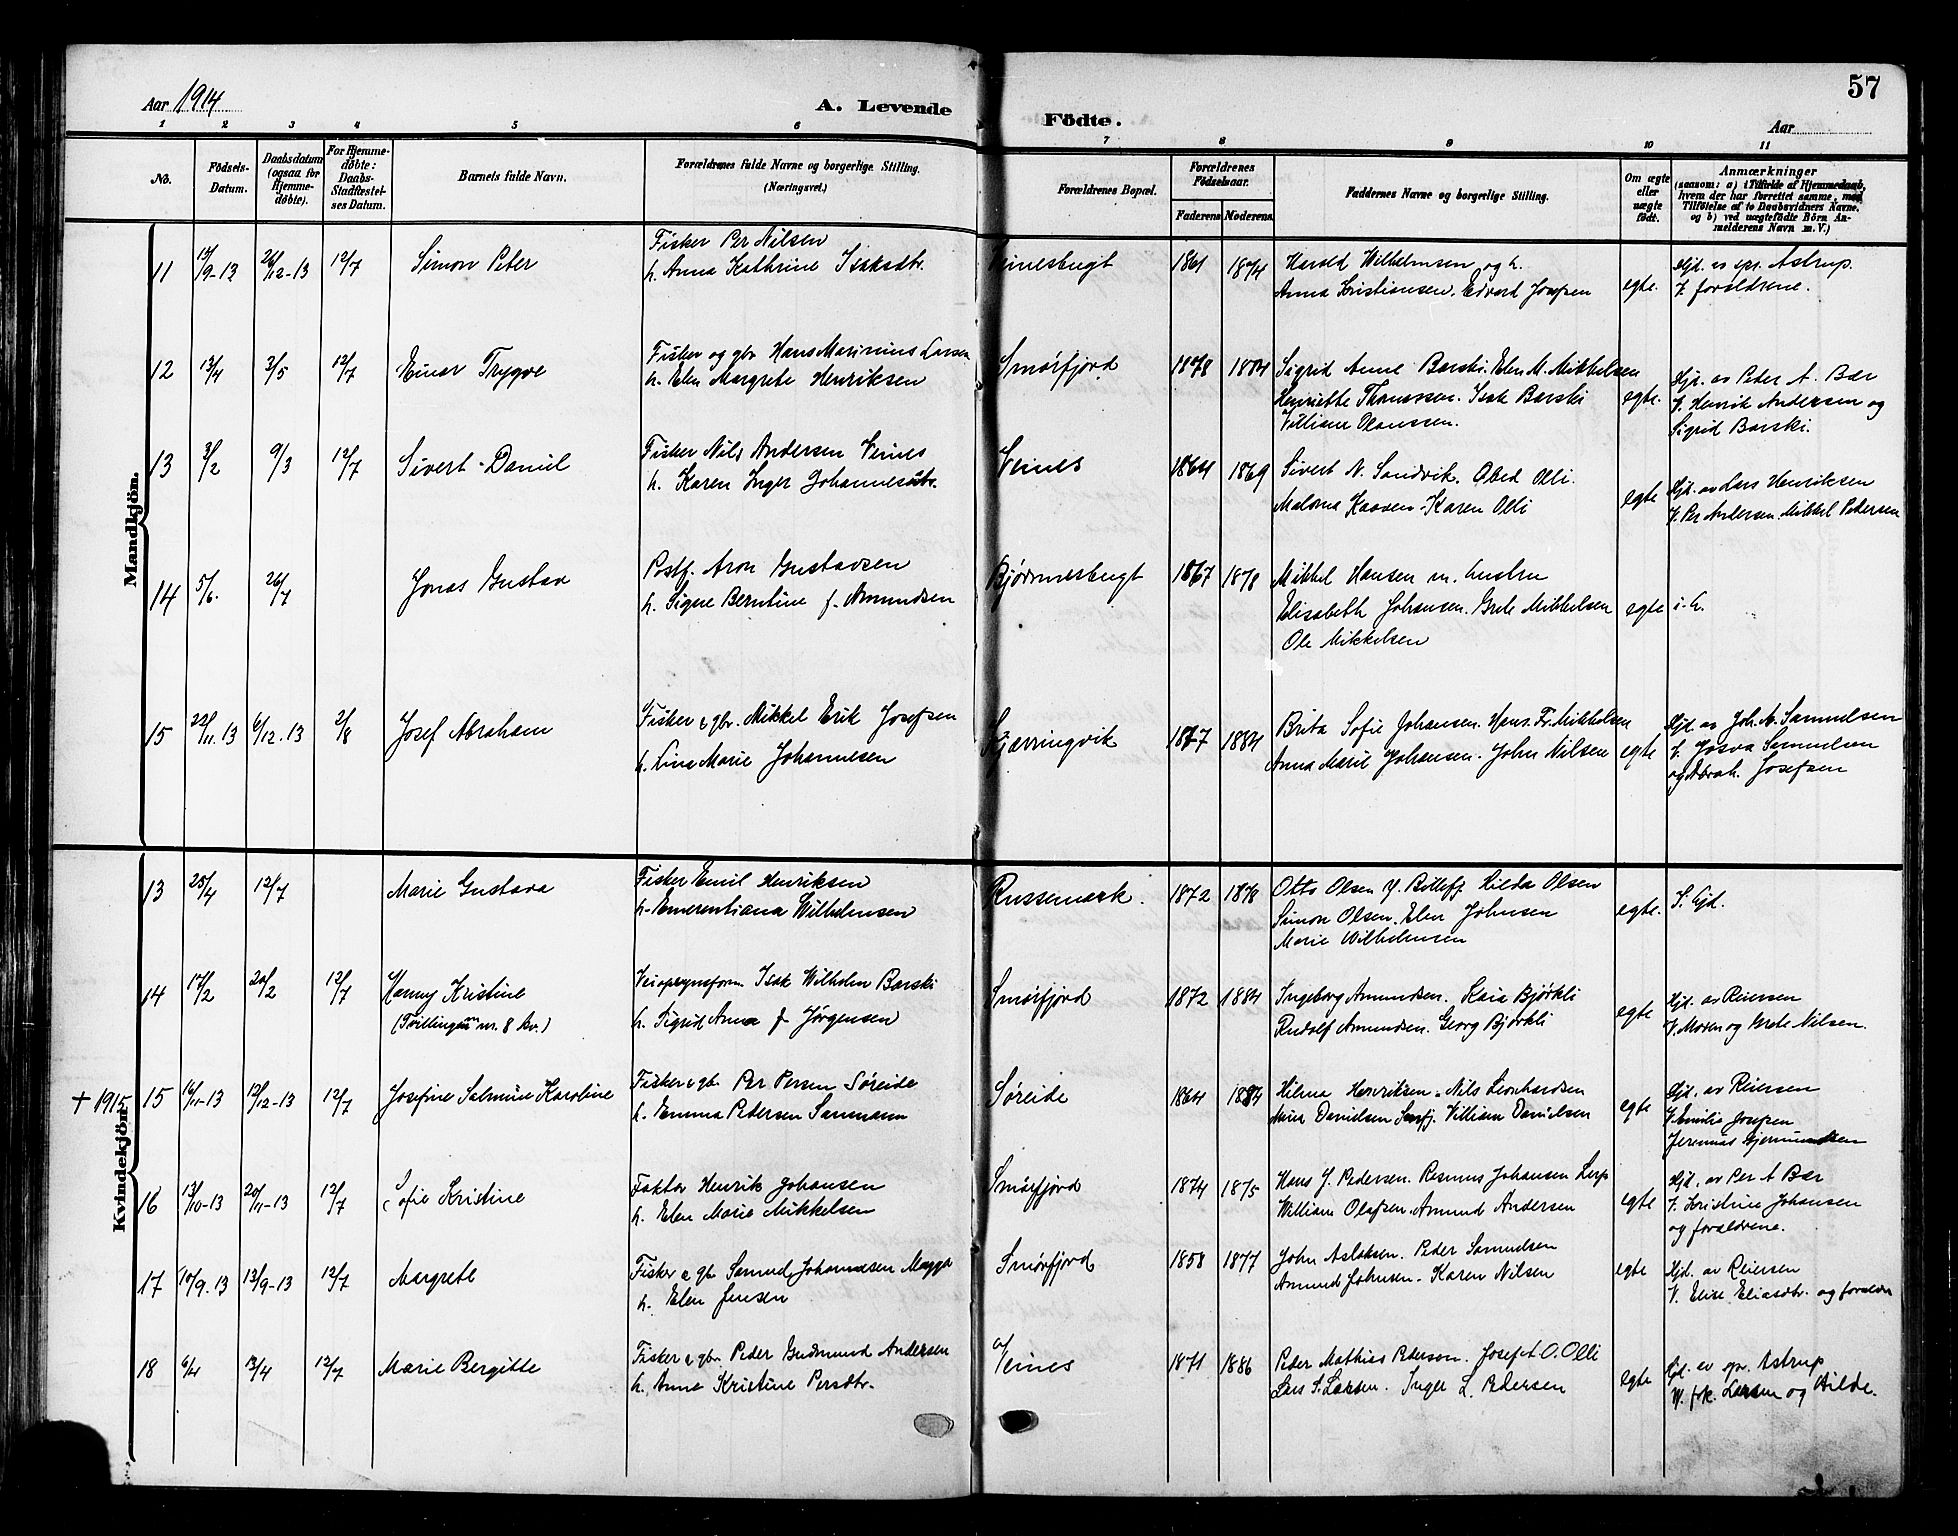 57
Aar 1914
A. Levende
Födte.
Aar
1 2 3 4 5 6 7 8 9 10 11
No.
Födsels-
Datum.
Daabsdatum
(ogsaa for
Hjemme-
døbte).
For Hjemme-
døbte:
Daabs-
Stadfæstel-
ses Datum.
Barnets fulde Navn.
Forældrenes fulde Navne og borgerlige Stilling.
(Næringsvei.)
Forældrenes Bopæl.
Forældrenes
Födselsaar.
Faderens Moderens
Faddernes Navne og borgerlige Stilling.
Om ægte
eller
uægte
födt.
Anmærkninger
(saasom: a) i Tilfælde af Hjemmedaab,
hvem der har forrettet samme, med
Tilföielse af to Daabsvidners Navne,
og b) ved uægtefödte Börn An-
melderens Navn m. V.)
Mandkjön.
11 /9-13 26/12-13 12/7 Simon Peter
Fisker Per Nilsen
h. Anna Kathrine Isaksdtr.
Veinesbugt 1861 1874
Harald Wilhelmsen og h.
Anna Kristiansen. Edvard Josefsen
egte.
Hjd. av spr. Astrup.
V. forældrene.
12 13/4 3/5 12/7 Einar Trygve
Fisker og gbr Hans Marinius Larsen
h. Elen Margrete Henriksen
Smørfjord 1878 1884
Sigrid Anne Barski. Elen M. Mikkelsen
Henriette Thomassen. Isak Barski
Villiam Olaussen.
egte.
Hjd. av Peter A. Bær
V. Henrik Andersen og
Sigrid Barski.
13 3/2 9/3 12/7 Sivert Daniel
Fisker Nils Andersen Veines
h. Karen Inger Johannesdtr.
Veines 1864 1869
Sivert N. Sandvik. Obed Olli.
Malona Kaaven. Karen Olli
egte
Hjd. av Lars Henriksen
V. Per Andersen. Mikkel Pedersen
14 5/6. 26/7 Jonas Gustav
Postf. Aron Gustavsen
h. Signe Berntine f. Amundsen
Bjørnnesbugt 1867 1878
Mikkel Hansen m. hustru
Elisabeth Johansen. Grete Mikkelsen
Ole Mikkelsen
egte i. h.
15 22/11.13 6/12.13 2/8 Josef Abraham
Fisker & gbr. Mikkel Erik Josefsen
h. Lina Marie Johannesen
Kjærringvik 1877 1884
Brita Sofie Johansen. Hans Fr. Mikkelsen
Anna Marie Johansen. John Nilsen
egte
Hjd. av Joh. A. Samuelsen
V. Josva Samuelsen
og Abrah. Josefsen
Kvindekjön.
13 25/4 12/7 Marie Gustava
Fisker Emil Henriksen
h. Emerentiana Wilhelmsen
Russemark. 1872 1876
Otto Olsen y. Billefj. Hilda Olsen
Simon Olsen. Elen Johnsen
Marie Wilhelmsen
egte. S. Gjd.
14 17/2 20/2 12/7 Hanny Kristine
(Tvillinger nr. 8 kv.)
Veiopsynsform Isak Wilhelm Barski
h. Sigrid Anna f. Jørgensen
Smørfjord 1872 1884
Ingeborg Amundsen. Kaia Bjørkli
Rudolf Amundsen. Georg Bjørkli
egte
Hjd. av Reiersen
V. Moren og Grete Nilsen.
+ 1915 15 16/11-13 13/12-13 12/7 Josefine Salmine Karoline
Fisker & gbr. Per Persen Søreide
h. Emma Pedersen Sanmann
Søreide 1864 1884
Hilma Henriksen. Nils Leonhardsen
Marie Danielsen Smfj. William Danielsen
egte
Hjd. av Reiersen
V. Emilie Josefsen
Jeremias Gjermundsen
16 13/10-13 20/11-13 12/7 Sofie Kristine
Faktor Henrik Johansen
h. Elen Marie Mikkelsen
Smørfjord 1874 1875
Hans J. Pedersen. Rasmus Johansen Lerp
William Olafsen. Amund Andersen
egte
Hjd. av Per A Bær
V. Kristine Johansen
og forældrene.
17 10/9.13 13/9-13 12/7 Margrete
Fisker & gbr Samuel Johannesen Magga
h. Elen Jensen
Smørfjord 1858 1877
John Aslaksen. Peder Samuelsen
Amund Johnsen. Karen Nilsen
egte
Hjd. av Reiersen
V. Elise Eliasdtr. og foraldr
18 6/4 13/4 12/7 Marie Bergitte
Fisker & gbr Peder Gudmund Andersen
h. Anne Kristine Persdtr.
af Veines 1871 1886
Peder Mathies Pederson. Josef A. O. Olli
Lars S. Larsen. Inger L. Pedersen
egte
Hjd. av spr. Astrup
V. frk. Larsen og Hilde.